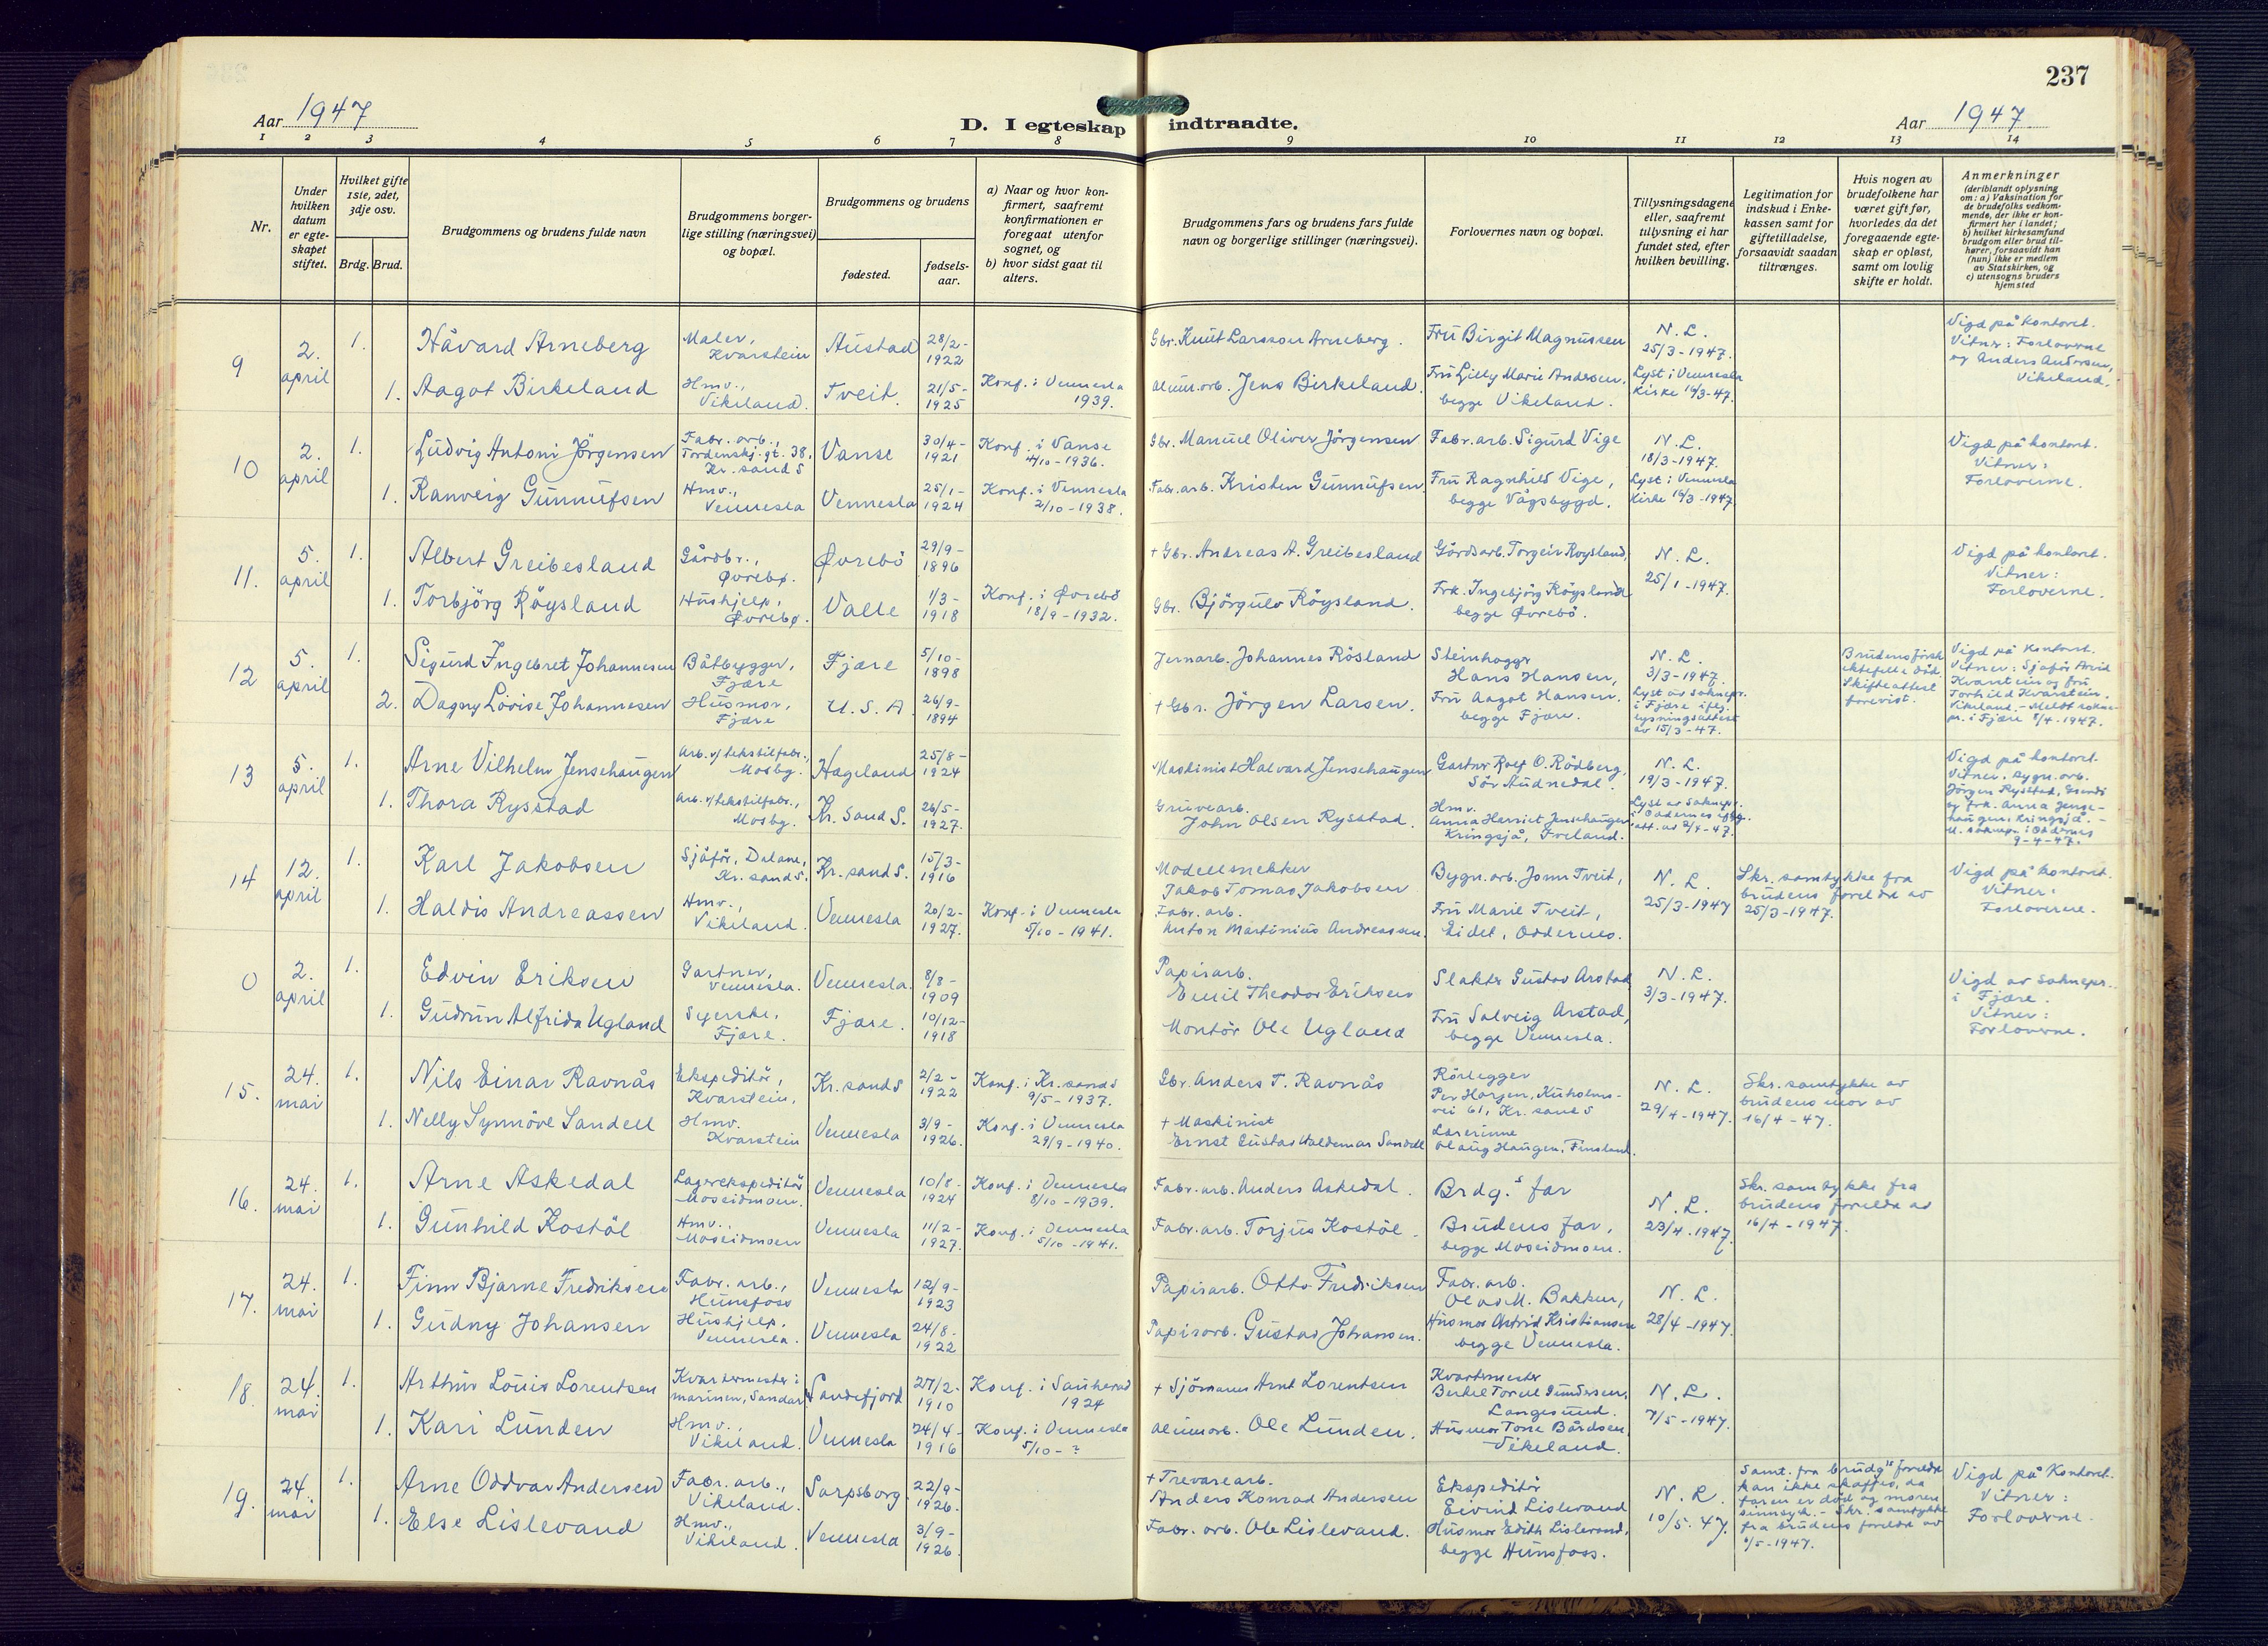 237
Aar 1947
D. I egteskap indtraadte.
Aar 1947
1 2 3 4 5 6 7 8 9 10 11 12 13 14
Nr.
Under
hvilken
datum
er egte-
skapet
stiftet.
Hvilket gifte
1ste, 2det,
3dje osv.
Brdg. Brud.
Brudgommens og brudens fulde navn
Brudgommens borger-
lige stilling (næringsvei)
og bopæl.
Brudgommens og brudens
fødested.
fødsels-
aar.
a) Naar og hvor kon-
firmert, saafremt
konfirmationen er
foregaat utenfor
sognet, og
b) hvor sidst gaat til
alters.
Brudgommens fars og brudens fars fulde
navn og borgerlige stillinger (næringsvei).
Forlovernes navn og bopæl.
Tillysningsdagene
eller, saafremt
tillysning ei har
fundet sted, efter
hvilken bevilling.
Legitimation for
indskud i Enke-
kassen samt for
giftetilladelse,
forsaavidt saadan
tiltrænges.
Hvis nogen av
brudefolkene har
været gift før,
hvorledes da det
foregaaende egte-
skap er opløst,
samt om lovlig
skifte er holdt.
Anmerkninger
(deriblandt oplysning
om: a) Vaksination for
de brudefolks vedkom-
mende, der ikke er kon-
firmert her i landet;
b) hvilket kirkesamfund
brudgom eller brud til-
hører, forsaavidt han
(hun) ikke er medlem
av Statskirken, og
c) utensogns bruders
hjemsted
9
2.
april
1.
Håvard Arneberg
Maler,
Kvarstein
Austad
28/2-
1922
Gbr. Knut Larsson Arneberg.
Fru Birgit Magnussen
N. L.
25/3-1947.
Vigd på kontoret.
Vitner: Forloverne
og Anders Andersen,
Vikeland.
1.
Aagot Birkeland
Hmv.,
Vikeland.
Tveit.
21/5-
1925
Konf. i Vennesla
1939.
Alum.arb. Jens Birkeland.
Fru Gilly Marie Andersen,
begge Vikeland.
Lyst i Vennesla
Kirke 16/3-47.
10
2.
april
1.
Ludvig Antoni Jörgensen
Fabr. arb.,
Tordenskj. gt. 38,
Kr. sand S
Vanse
30/4-
1921
Konf. i Vanse
4/10-1936.
Gbr. Manuel Oliver Jörgensen
Fabr. arb. Sigurd Vige
N. L.
18/3-1947.
Vigd på kontoret.
Vitner:
Forloverne.
1.
Ranveig Gunnufsen
Hmv.,
Vennesla
Vennesla
25/1-
1924
Konf. i Vennesla
2/10-1938.
Fabr. arb. Kristen Gunnufsen.
Fru Ragnhild Vige,
begge Vågsbygd.
Lyst i Vennesla
Kirke 16/3-1947.
11.
5.
april
1.
Albert Greibesland
Gårdbr.,
Øvrebø.
Øvrebö
29/9-
1896
+ Gbr. Andreas A. Greibesland
Gårdsarb. Torgeir Röysland,
N. L.
25/1-1947.
Vigd på kontoret.
Vitner:
Forloverne.
1.
Torbjörg Röysland
Hushjelp,
Øvrebø.
Valle
1/3-
1918
Konf. i Øvrebö
18/9-1932.
Gbr. Björgulv Röysland.
Frk. Ingebjörg Röysland
begge Øvrebö.
12
5.
april
1.
Sigurd Ingebret Johannesen
Båtbygger,
Fjære
Fjære
5/10-
1898
Jernarb. Johannes Rösland
Steinhogger
Hans Hansen,
N. L.
3/3-1947.
Brudens förste
ektefelle död.
Skifteattest
forevist.
Vigd på kontoret.
Vitner: Sjåför Arvid
Kvarstein og fru
Torhild Kvarstein,
Vikeland. - Meldt sokne-
pr. i Fjære 8/4-1947.
2.
Dagny Lovise Johannesen
Husmor,
Fjære
U. S. A
26/9-
1894
+ Gbr. Jörgen Larsen.
Fru Aagot Hansen.
begge Fjære.
Lyst av soknepr.
i Fjære iflg.
lysningsattest
av 15/3-47.
13
5.
april
1.
Arne Vilhelm Jensehaugen
Arb. v/ tekstilfabr.,
Mosby.
Hægeland
25/8-
1924
Maskinist Halvard Jensehaugen
Gartner Rolf O. Rödberg,
Sör Audnedal.
N. L.
19/3-1947.
Vigd på kontoret.
Vitner: bygn. arb.
Jörgen Rysstad,
og frk. Anna Jense-
haugen, Kringsjå. -
M. soknepr. i Oddernes
9-4-47.
1.
Thora Rysstad
Arb. v/ tekstilfabr.,
Mosby.
Kr. Sand S.
26/5-
1927.
Gruvearb.
John Olsen Rysstad.
Hmv.
Anna Harriet Jensehaugen
Kringsjå, Iveland.
Lyst av soknepr.
i Oddernes iflg.
att. av 2/4-47.
14
12.
april
1.
Karl Jakobsen
Sjåför, Dalane,
Kr. sand S.
Kr. sand S.
15/3-
1916
Modellsnekker
Jakob Tomas Jakobsen
Bygn. arb. John Tveit,
N. L.
25/3-1947
Skr. samtykke fra
brudens foreldre av
25/3-1947.
Vigd på kontoret.
Vitner:
Forloverne.
1.
Haldis Andreassen
Hmv.,
Vikeland.
Vennesla
20/2-
1927.
Konf. i Vennesla
5/10-1941.
Fabr. arb.
Anton Martinius Andreassen.
Fru Marie Tveit,
Eidet, Oddernes.
0
2.
april
1.
Edvin Eriksen
Gartner,
Vennesla.
Vennesla.
8/8-
1909
Papirarb.
Emil Theodor Eriksen
Slakter Gustav Arstad
N. L.
3/3-1947.
Vigd av soknepr.
i Fjære.
Vitner:
Forloverne.
1.
Gudrun Alfrida Ugland
Syerske,
Fjære.
Fjære.
10/12-
1918
Montör Ole Ugland
Fru Solveig Arstad,
begge Vennesla.
15.
24.
mai
1.
Nils Einar Ravnås
Ekspeditör,
Kvarstein,
Kr. sand S
2/2-
1922
Konf. i Kr. sand S
9/5-1937.
Gbr. Anders T. Ravnås
Rörlegger
Per Horgen, Kuholms-
vei 61, Kr. sand S
N. L.
29/4-1947.
Skr. samtykke av
brudens mor av
16/4-47.
1.
Nelly Synnöve Sandell
Hmv.
Kvarstein
Vennesla
3/9-
1926.
Konf. i Vennesla
29/9-1940.
+ Maskinist
Ernst Gustav Valdemar Sandell
Lærerinne
Olaug Haugen, Finsland.
16.
24.
mai
1.
Arne Askedal
Lagerekspeditör
Moseidmoen.
Vennesla
10/8-
1924
Konf. i Vennesla
8/10-1939.
Fabr. arb. Anders Askedal.
Brdg.s far
N. L.
23/4-1947.
Skr. samtykke fra
brudens foreldre av
16/4-1947.
1.
Gunhild Kostöl
Hmv.,
Moseidmoen
Vennesla
11/2-
1927.
Konf. i Vennesla
5/10-1941.
Fabr. arb. Torjus Kostöl.
Brudens far,
begge Moseidmoen.
17.
24.
mai
1.
Finn Bjarne Fredriksen
Fabr. arb.,
Hunsfoss
Vennesla
12/9-
1923
Papirarb. Otto Fredriksen
Fabr. arb.
Olav M. Bakken,
N. L.
28/4-1947.
1.
Gudny Johansen
Hushjelp,
Vennesla.
Vennesla
24/8-
1922
Papirarb. Gustav Johansen.
Husmor Astrid Kristiansen
begge Vennesla.
18.
24.
mai
1.
Arthur Louis Lorentsen
Kvartermester i
marinen, Sandar
Sandefjord
27/2-
1910
Konf. i Sauherad
1924
+ Sjömann Arnt Lorentsen
Kvartermester
Bertel Torell Gundersen,
Langesund.
N. L.
7/5-1947.
1.
Kari Lunden
Hmv.,
Vikeland.
Vennesla
24/4-
1916
Konf. i Vennesla
5/10-?
Alum. arb. Ole Lunden.
Husmor Tone Bårdsen,
Vikeland.
19.
24.
mai
1.
Arne Oddvar Andersen
Fabr. arb.,
Vikeland.
Sarpsborg
22/9-
1926.
+ Trevarearb.
Anders Konrad Andersen
Ekspeditör
Eivind Lislevand
N. L.
10/5-47.
Samt. fra brudg.s foreldre
kan ikke skaffes, da
faren er död og moren
sinnsyk. - Skr. samtykke
fra brudens foreldre av
/5-1947.
Vigd på kontoret.
Vitner:
Forloverne.
1.
Else Lislevand
Hmv.,
Vikeland.
Vennesla
3/9-
1926.
Fabr. arb. Ole Lislevand.
Husmor Edith Lislevand,
begge Hunsfoss.